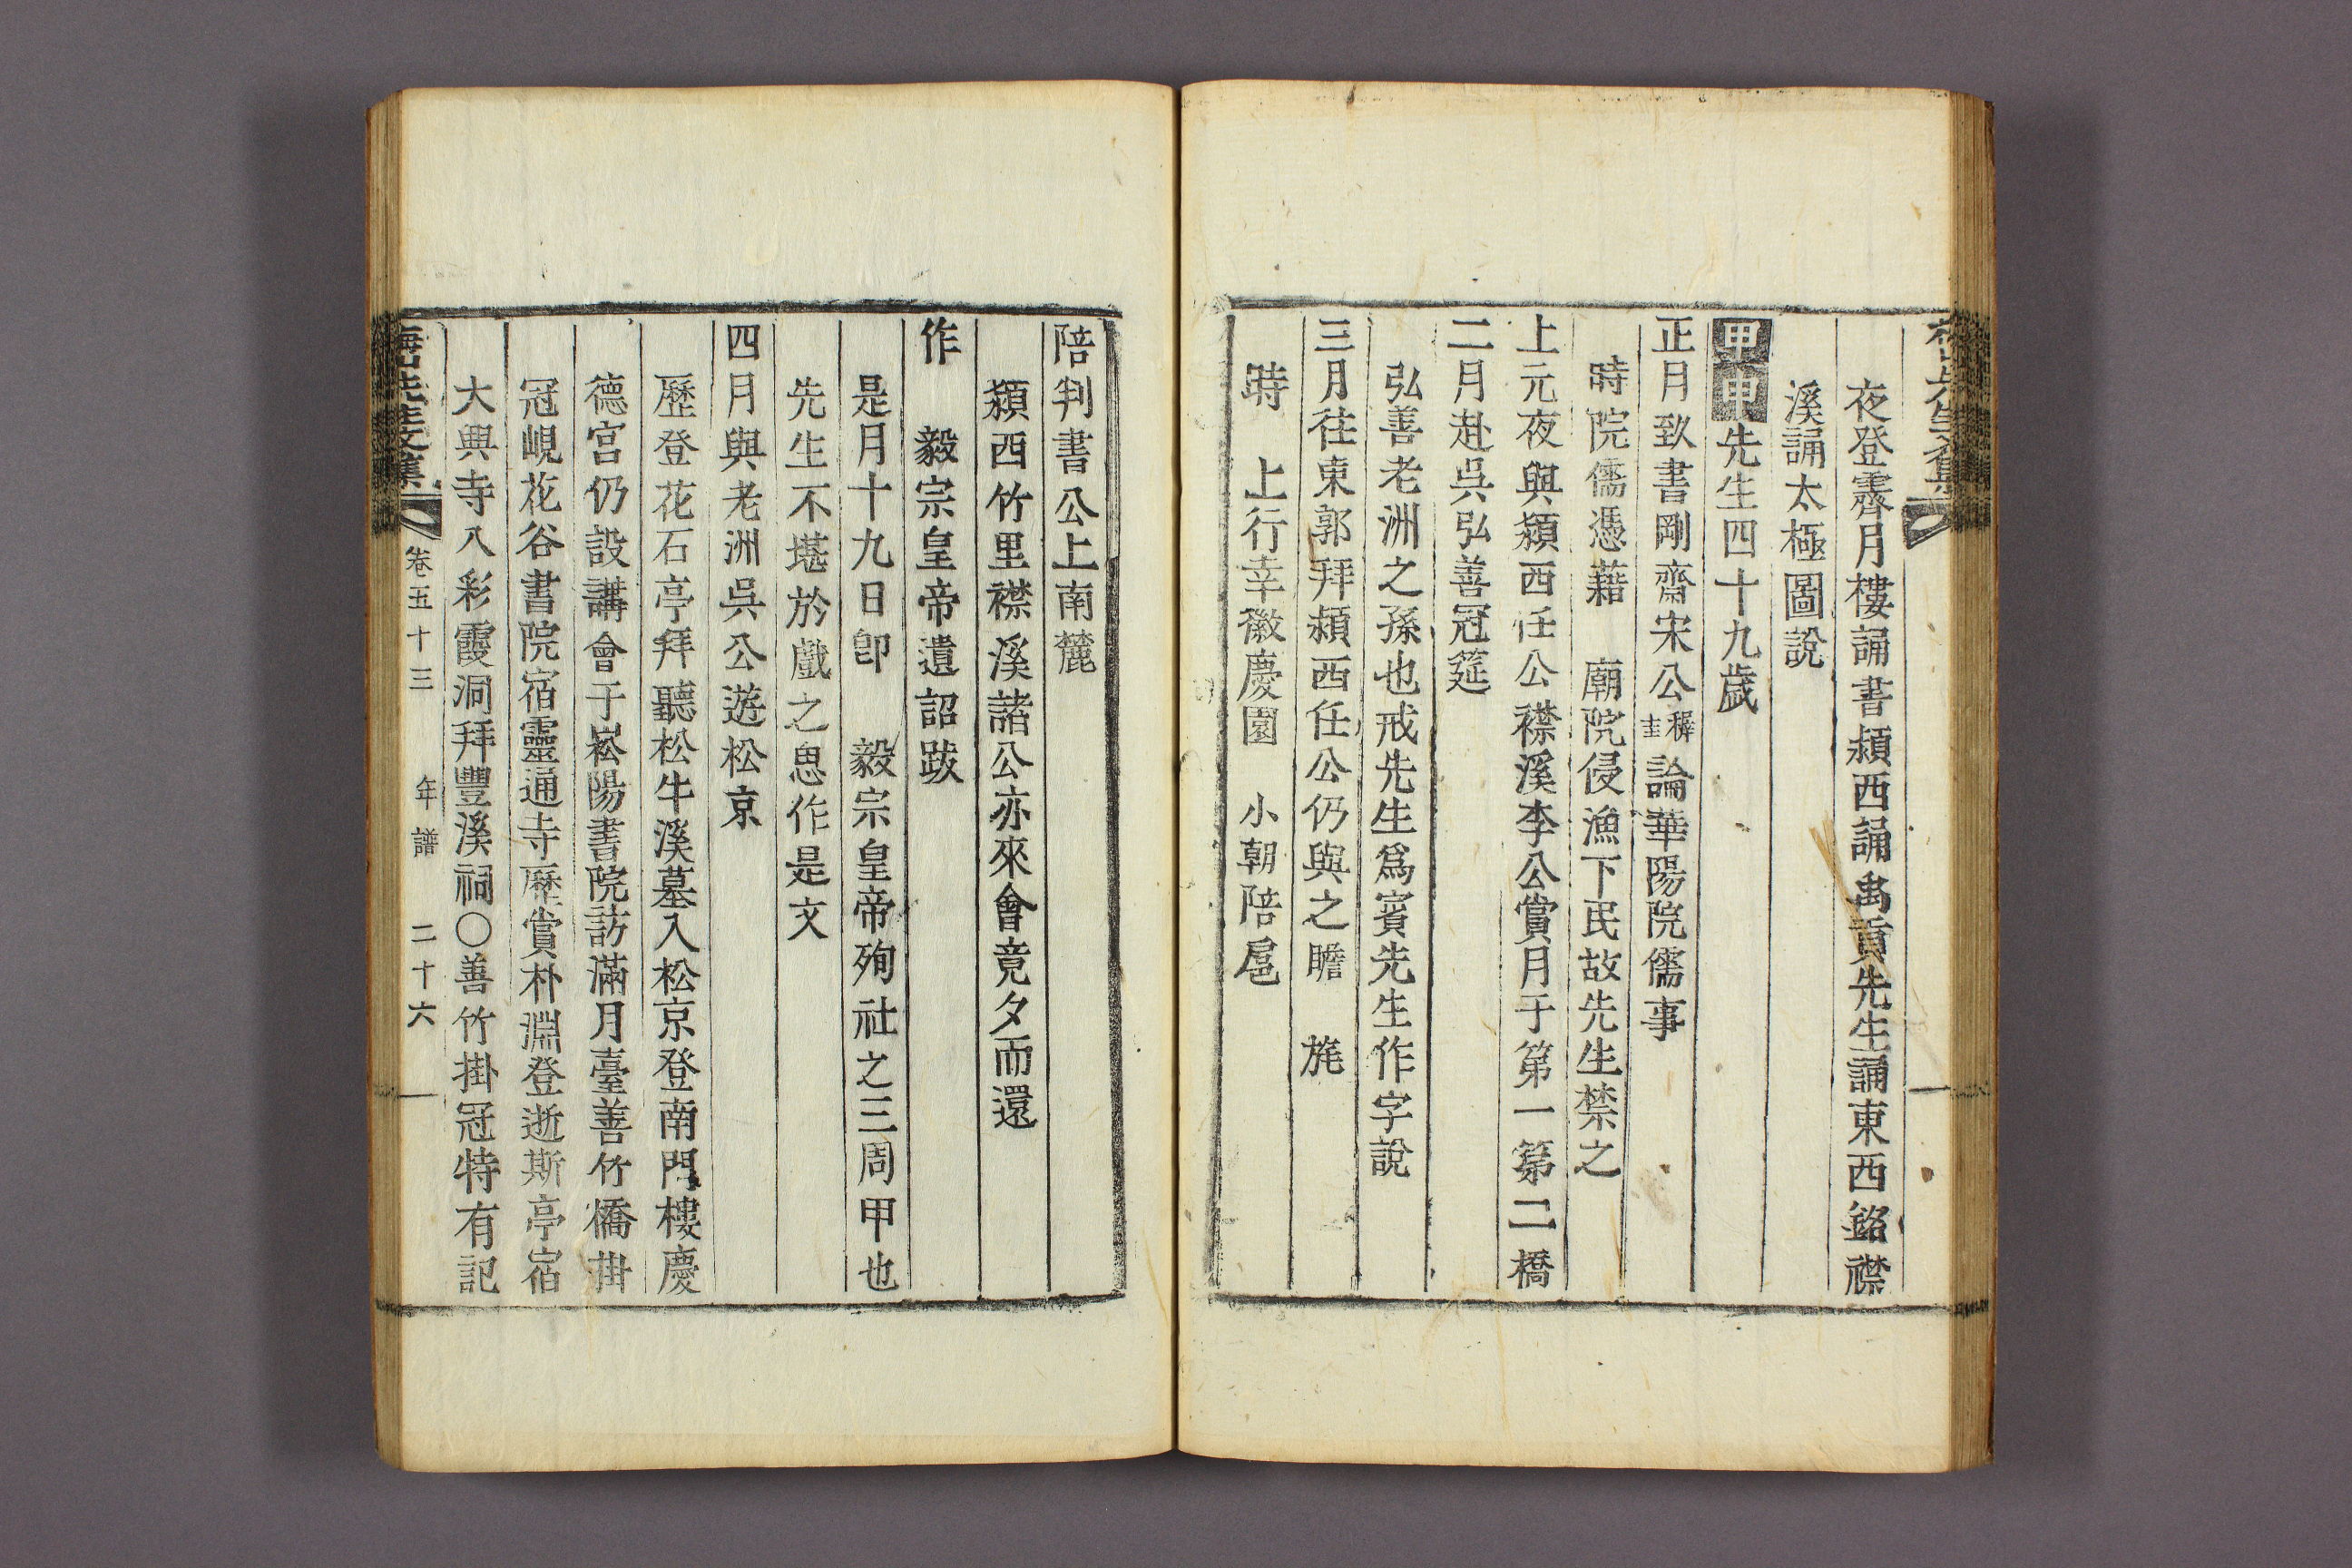 夜登霽月樓誦書潁西誦禹貢先生誦東西銘襟
溪誦太極圖說
甲申先生四十九歲
正月致書剛齋宋公穉圭論華陽院儒事
時院儒憑藉 廟院侵漁下民故先生禁之
上元夜與潁西任公襟溪李公賞月于第一第二橋
二月赴吳弘善冠筵
弘善老洲之孫也戒先生爲賓先生作字說
三月往東郭拜潁西任公仍與之瞻 旄
時 上行幸徽慶園 小朝陪扈
陪判書公上南麓
潁西竹里襟溪諸公亦來會竟夕而還
作 毅宗皇帝遺詔跋
是月十九日卽 毅宗皇帝殉社之三周甲也
先生不堪於戲之思作是文
四月與老洲吳公遊松京
歷登花石亭拜聽松牛溪墓入松京登南門樓慶
德宮仍設講會于崧陽書院訪滿月臺善竹橋掛
冠峴花谷書院宿靈通寺歷賞朴淵登逝斯亭宿
大興寺入彩霞洞拜豐溪祠○善竹掛冠特有記
梅山先生文集 卷五十三 年譜 二十六